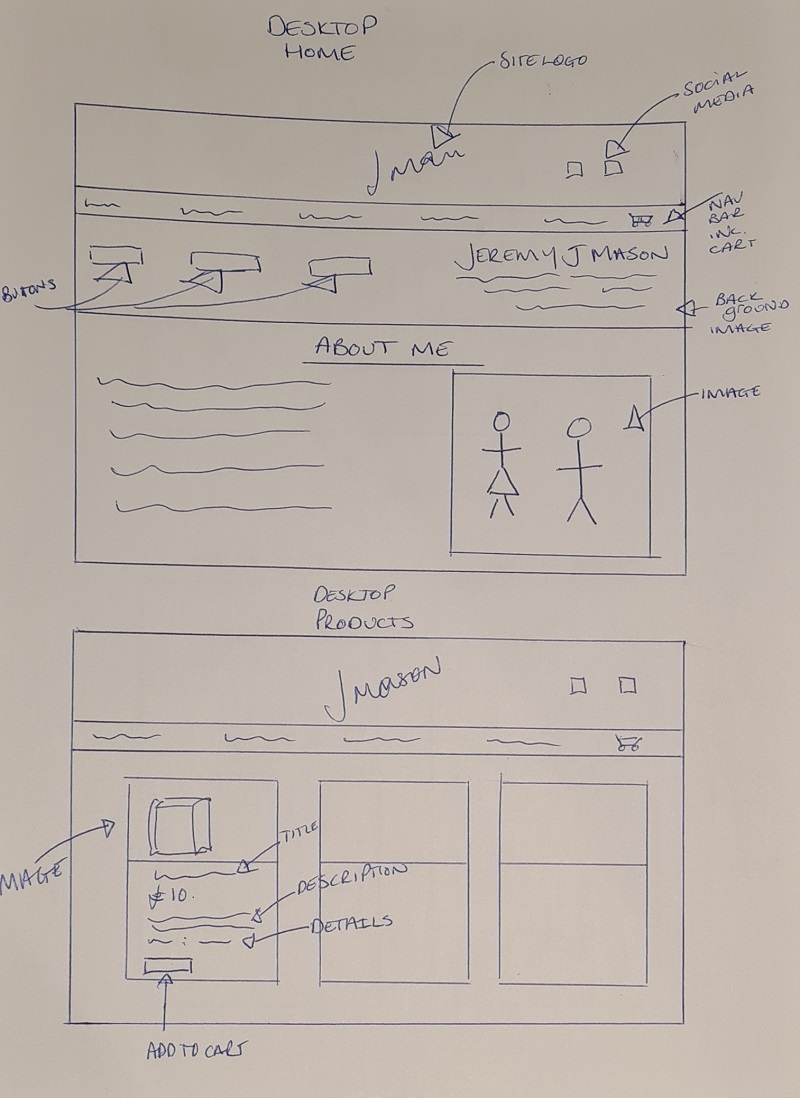 DESKTOP
HOME
SITE LOGO
SOCIAL
MEDIA
J
NAV
BAR
INC.
CART
JEREMY J MASON
BUTONS
BACK
GROUND
IMAGE
ABOUT ME
IMAGE
DESKTOP
PRODUCTS
J MASON
TITLE
MAGE
£10.
DESCRIPTION
DETAILS
ADD TO CART